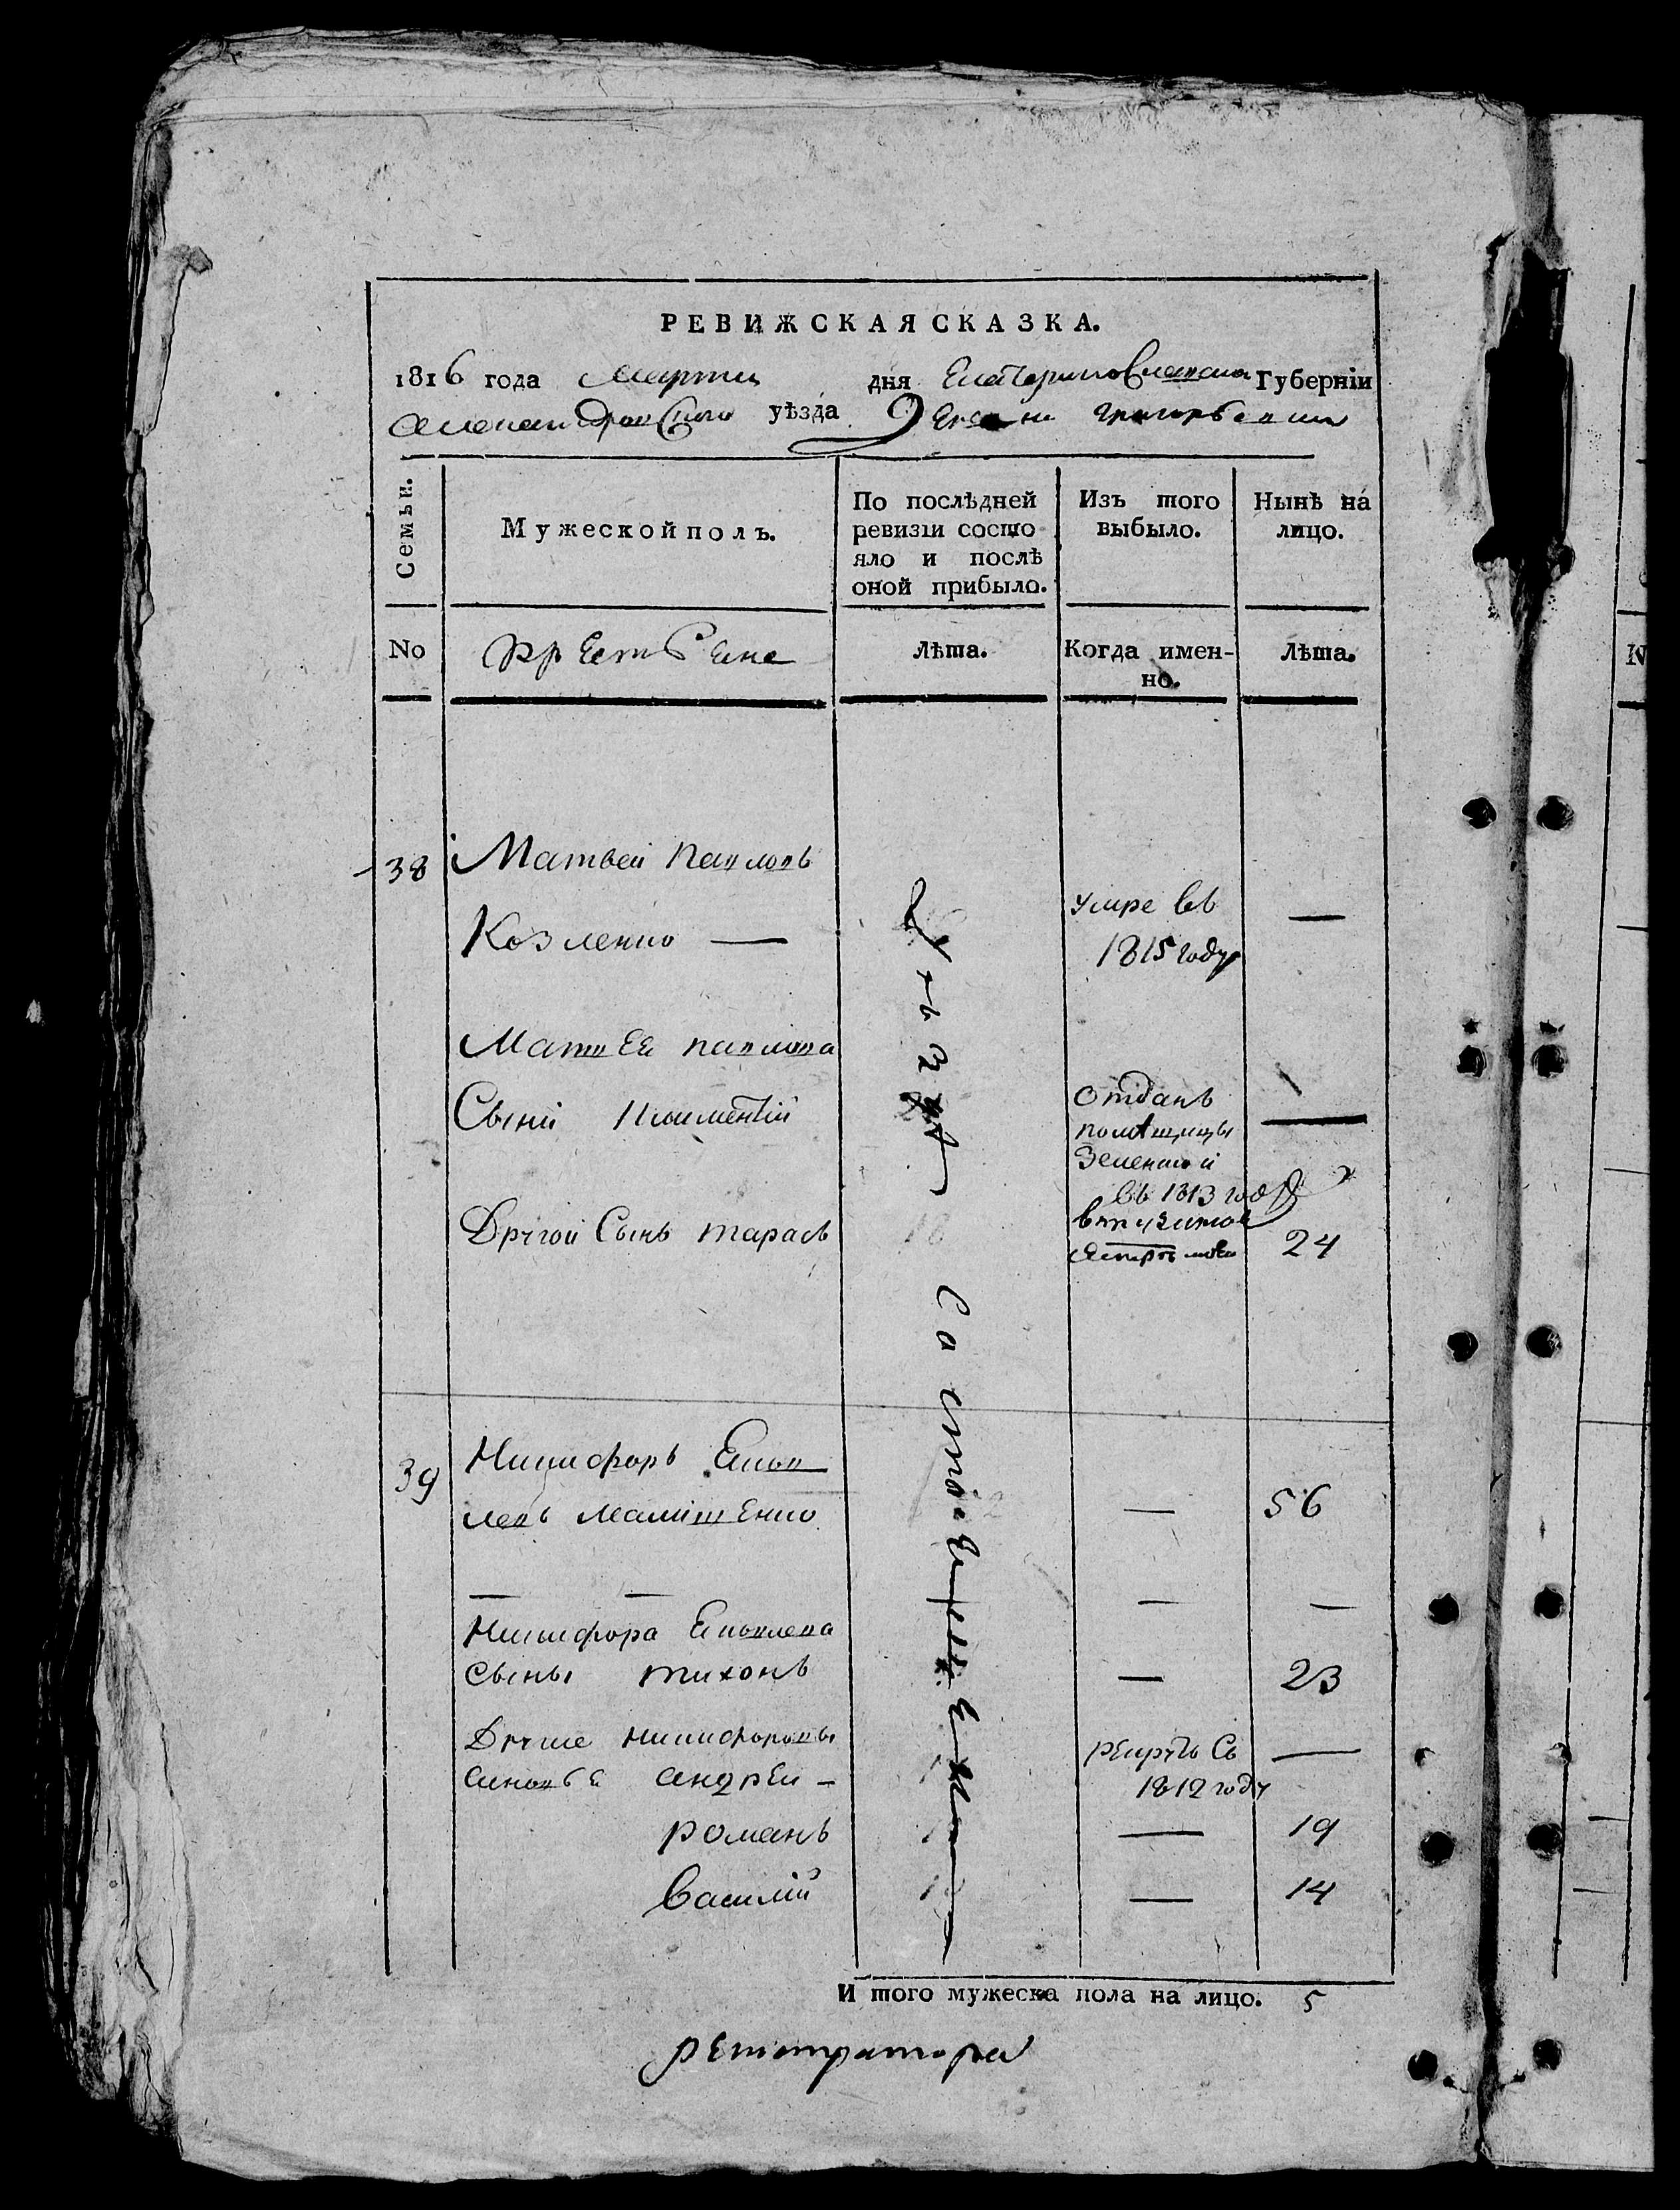 РЕВИЖСКАЯ СКАЗКА.
1816 года Марта дня Екатеринославской Губернiи
Александровского уѣзда
Семьи.
Мужеской полъ.
По послѣдней ревизiи состояло и послѣ оной прибыло.
Изъ того выбыло.
Нынѣ на лицо.
No
Лѣта.
Когда именно.
Лѣта.
38 Матвей Павловъ
Козленко —
умре въ
1815 году
—
Матвея Павлова
Сынъ Климентiй
Отданъ
помещицы
Зеленской
въ 1813 году
—
Другой Сынъ Тарасъ 18
24
39 Никифоръ Яков
левъ Малишенко — 56
— — — —
Никифора Яковлева
сыны тихонъ — 23
Другие никифоровы
синовья андрей —
рекрутъ въ
1812 году
—
романъ — 19
Василiй — 14
И того мужеска пола на лицо. 5
регистратора